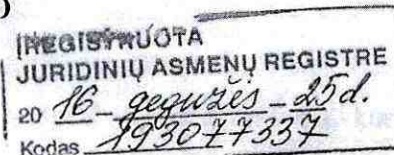 ĮREGISTRUOTA
JURIDINIŲ ASMENŲ REGISTRE
20 16 - gegužės - 25 d.
Kodas 193077337